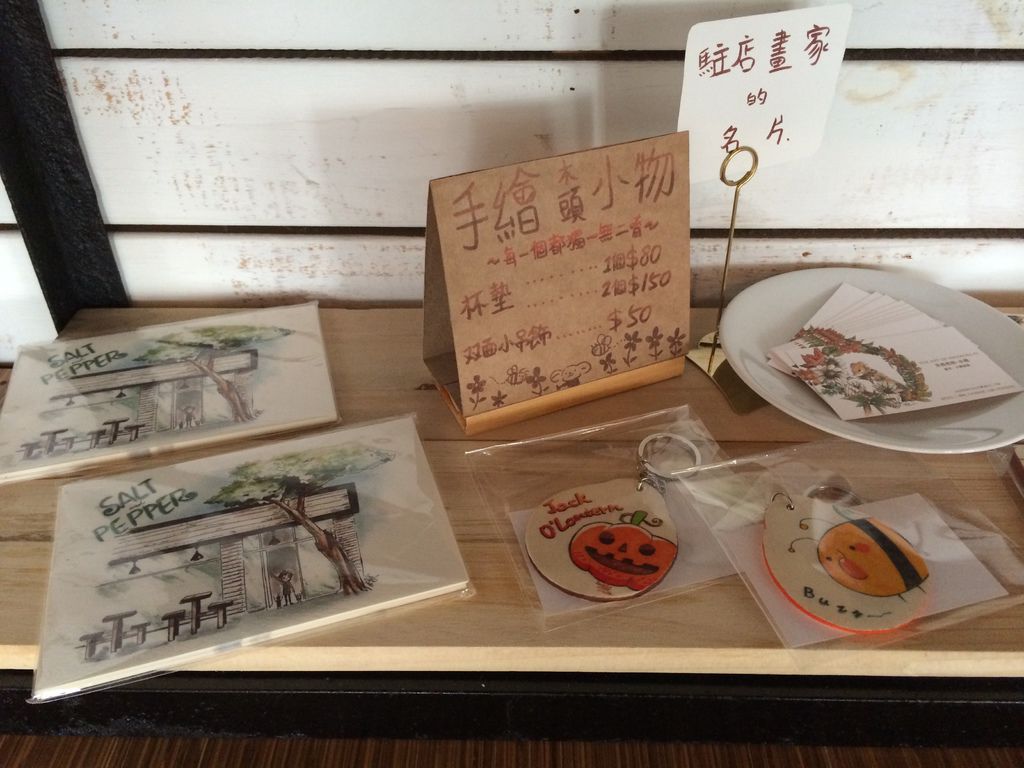 駐店畫家
的
名片.
手繪木頭小物
~每一個都獨一無二喔~
杯墊 .......... 1個$80
.......... 2個$150
双面小吊飾........ $50
SALT
PEPPER
SALT
PEPPER
Jack
O'Lantern
Buzz~